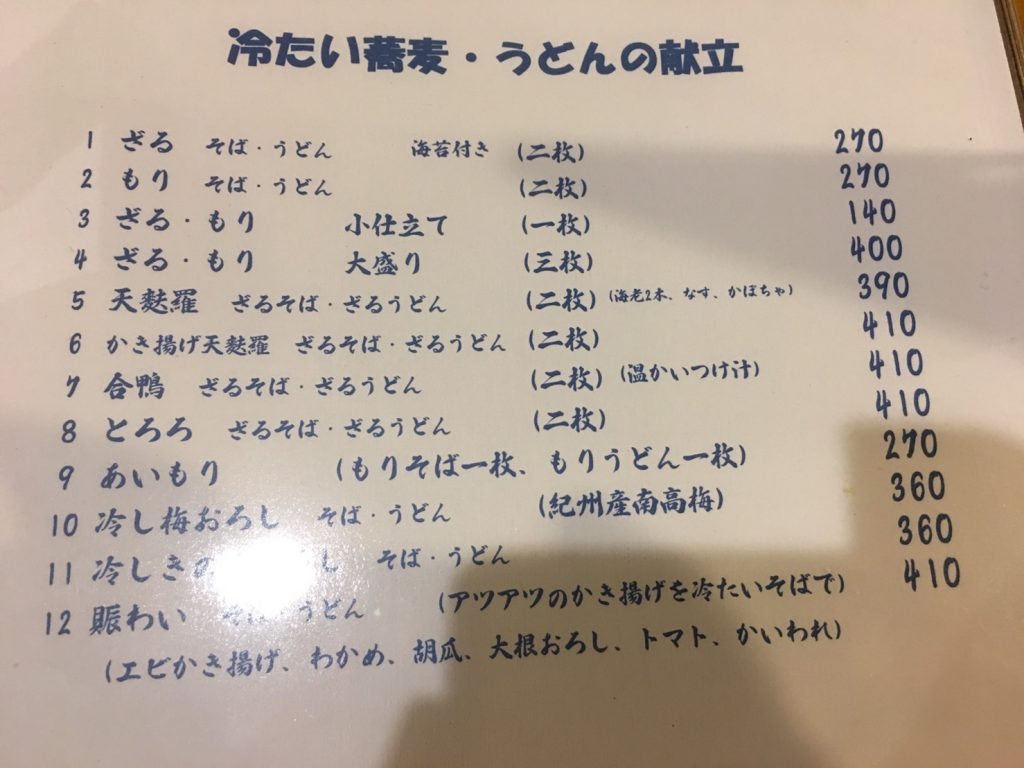 冷たい蕎麦・うどんの献立
1 ざる そば・うどん 海苔付き (二枚) 270
2 もり そば・うどん (二枚) 270
3 ざる・もり 小仕立て (一枚) 140
4 ざる・もり 大盛り (三枚) 400
5 天麩羅 ざるそば・ざるうどん (二枚) (海老2本、なす、かぼちゃ) 390
6 かき揚げ天麩羅 ざるそば・ざるうどん (二枚) 410
7 合鴨 ざるそば・ざるうどん (二枚) (温かいつけ汁) 410
8 とろろ ざるそば・ざるうどん (二枚) 410
9 あいもり (もりそば一枚、もりうどん一枚) 270
10 冷し梅おろし そば・うどん (紀州産南高梅) 360
11 冷しき そば・うどん 360
12 賑わい そば・うどん (アツアツのかき揚げを冷たいそばで) 410
(エビかき揚げ、わかめ、胡瓜、大根おろし、トマト、かいわれ)